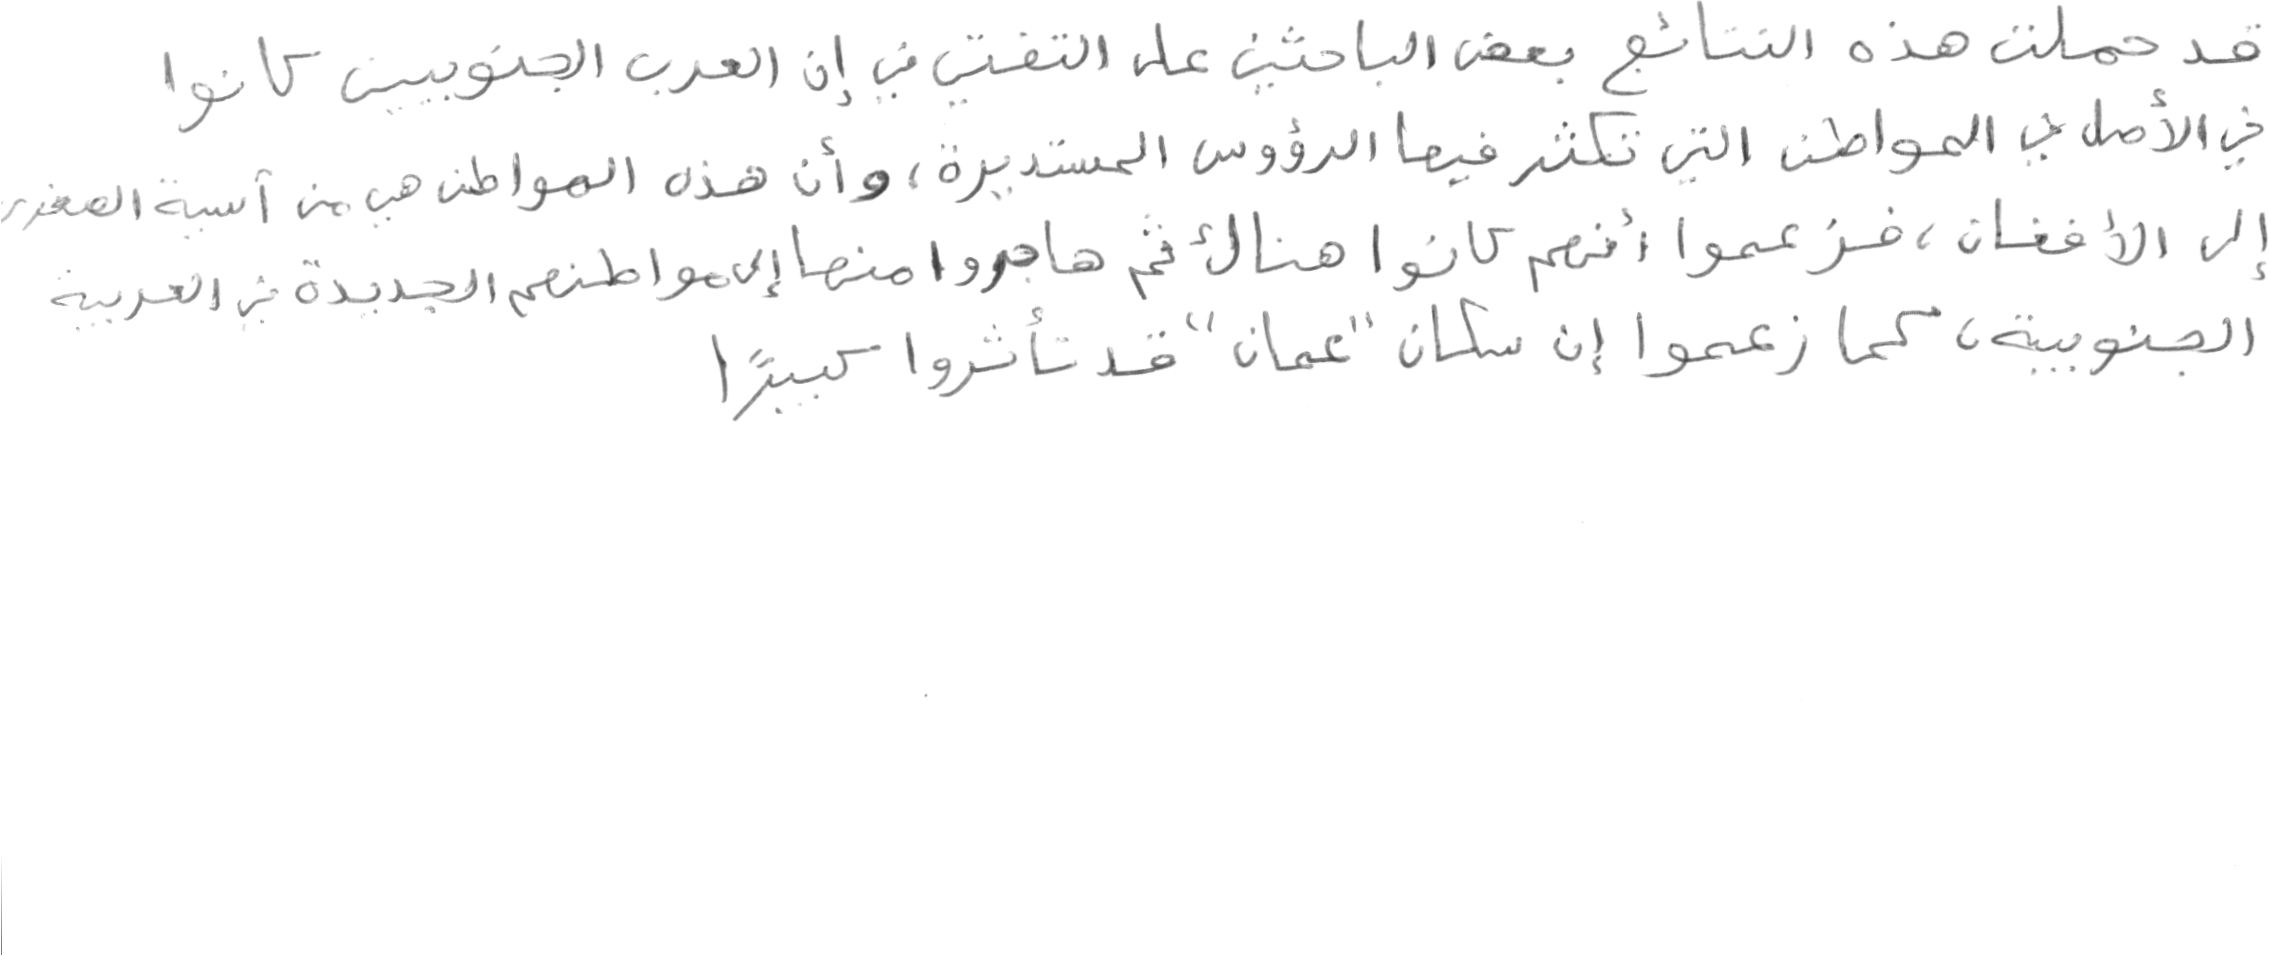 قد حملت هذه النتائج بعض الباحثين على التفتي في إن العرب الجنوبيين كانوا
في الأصل في المواطن التي تكثر فيها الرؤوس المستديرة، وأن هذه المواطن هي من آسية الصغرى
إلى الأفغان، فزعموا أنهم كانوا هناك ثم هاجروا منها إلى مواطنهم الجديدة في العربية
الجنوبية، كما زعموا إن سكان "عمان" قد تأثروا كبيرًا